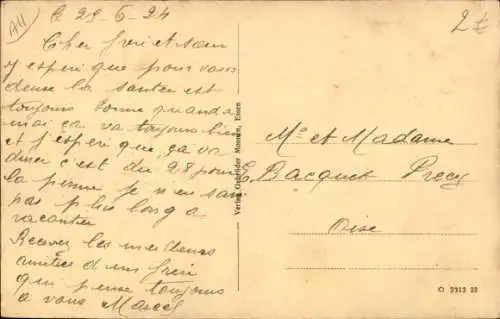 A11
2€
le 29-6-24
Cher frere et Soeur
J'esperé que pour vous
deux la santée est
toujours bonne quand a
moi ça va toujours bien
et j'esperé que ça va
durer c'est du 28 pour
la perme je n en sais
pas plus long a
vacanter
Recever les meilleurs
amitiée d'un frere
qui pense toujours
a vous Marcel
Verlag Gebrüder Monnin, Essen
Mr et Madame
Bacquet Precy
Oise
O 2313 23